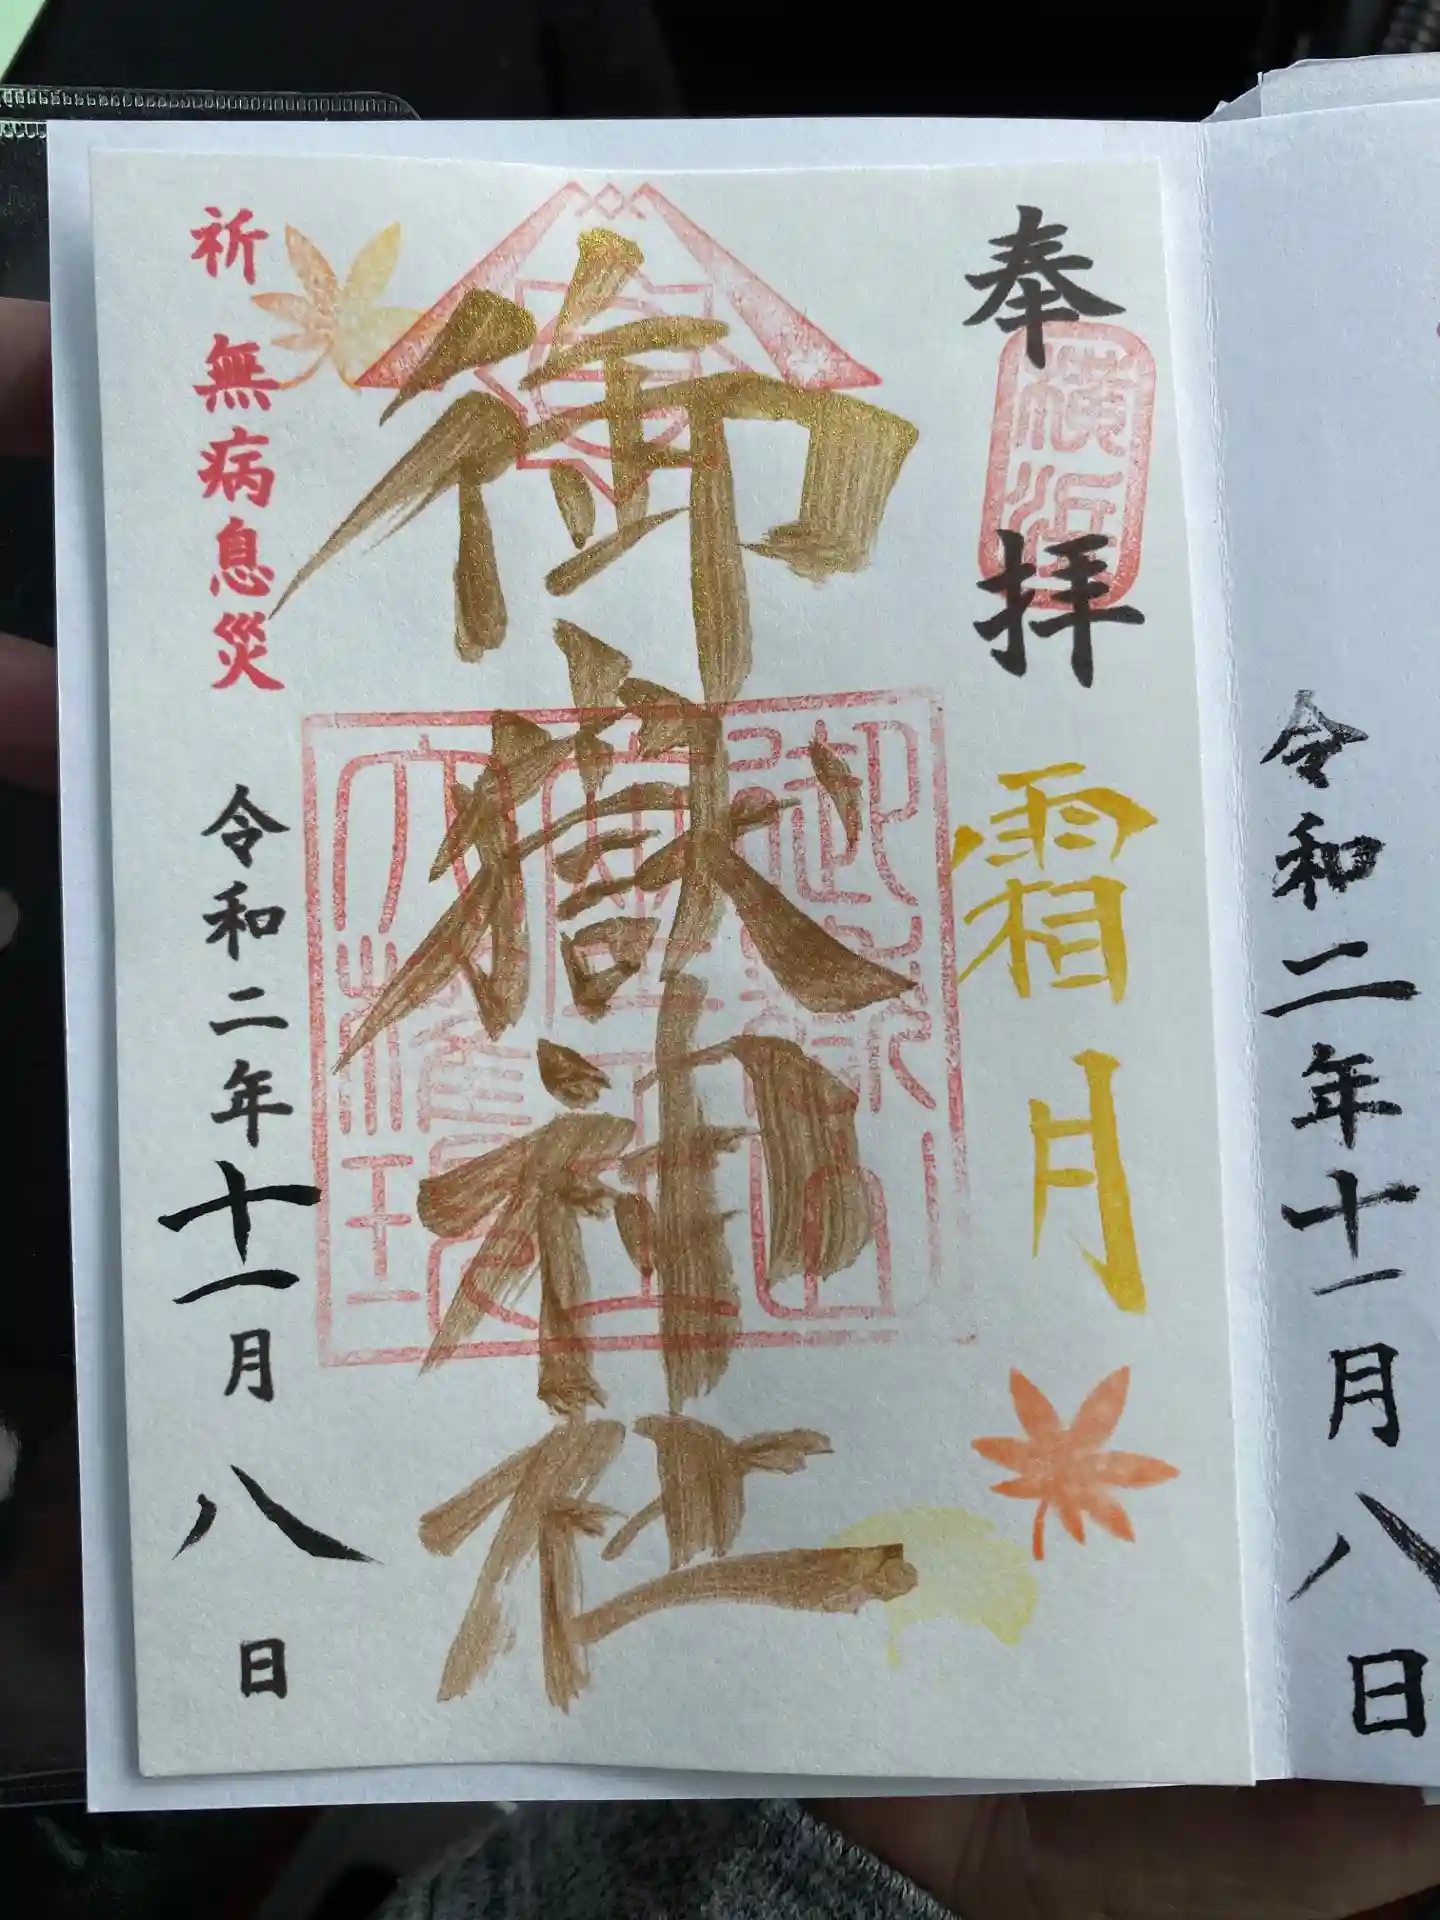 令和二年十一月八日
奉拝
横浜
霜月
御嶽神社
祈 無病息災
令和二年十一月八日